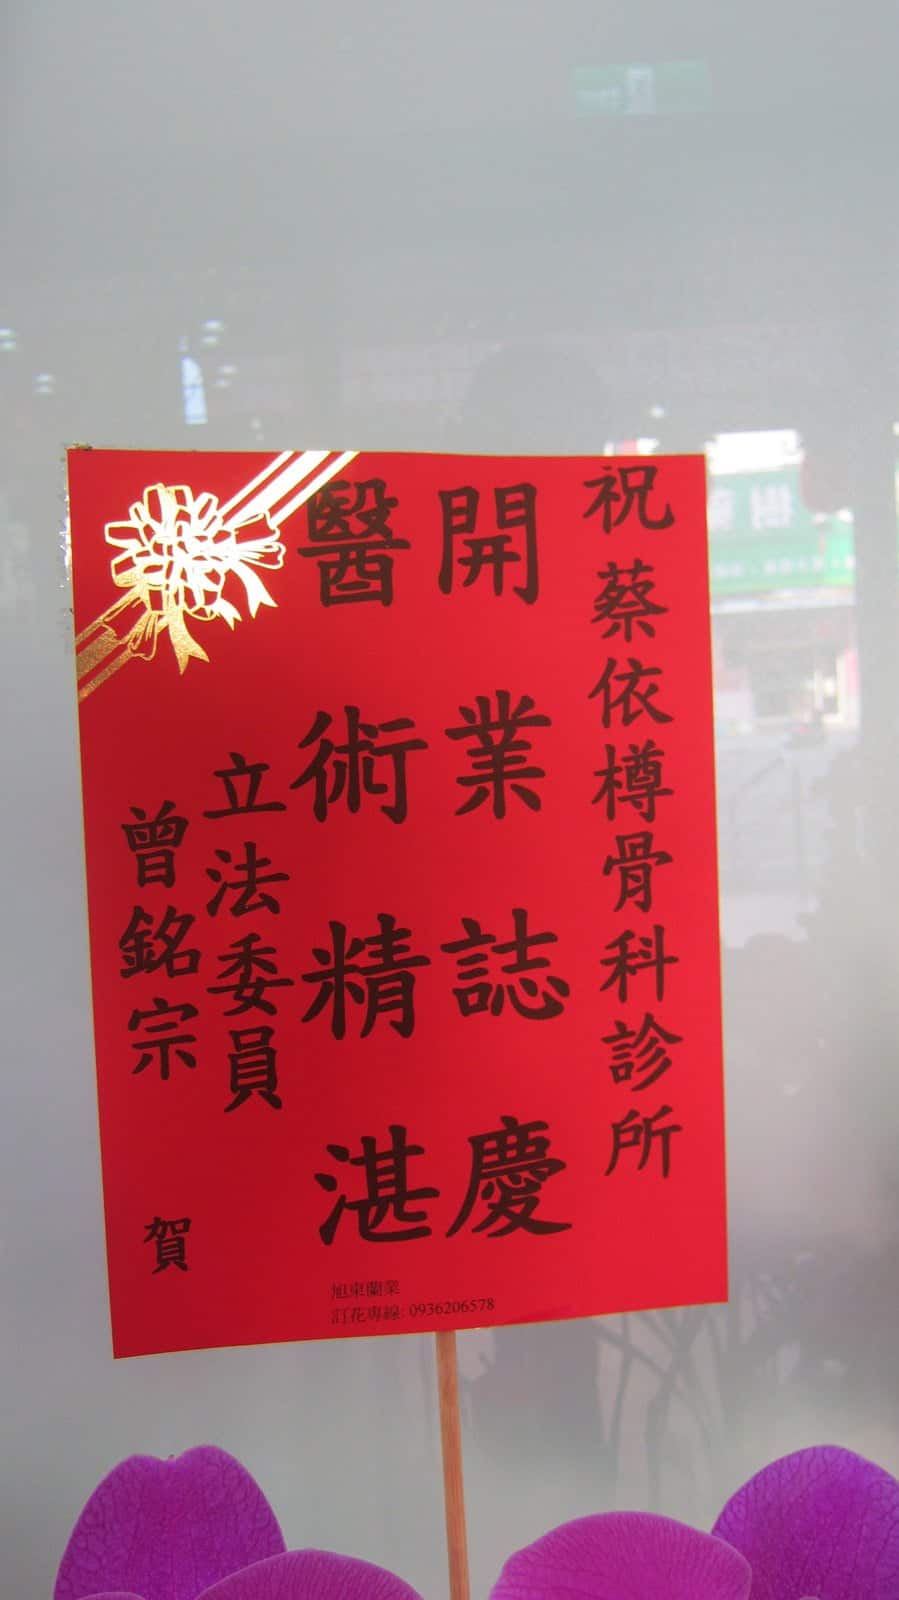 祝蔡依樽骨科診所
開業誌慶
醫術精湛
立法委員
曾銘宗 賀
旭東蘭業
訂花專線: 0936206578